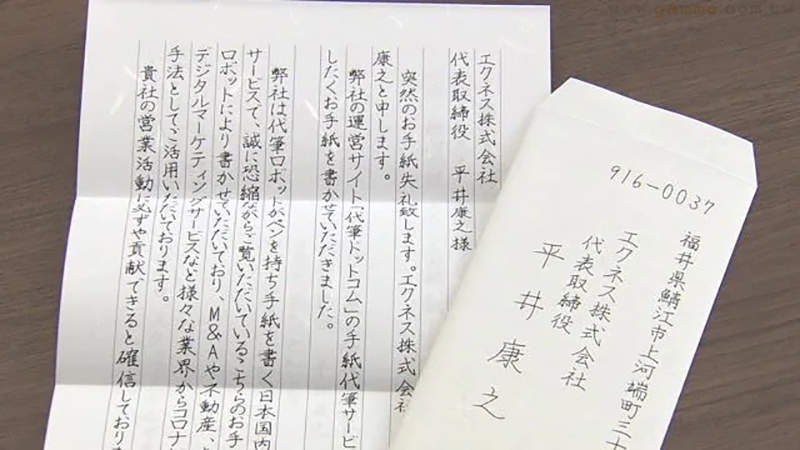 エクネス株式会社
代表取締役　平井康之様
突然のお手紙失礼致します。エクネス株式会社
康之と申します。
弊社の運営サイト「代筆ドットコム」の手紙代筆サービ
したくお手紙を書かせていただきました。
弊社は代筆ロボットがペンを持ち手紙を書く日本国内
サービスで、誠に恐縮ながらご覧いただいているこちらのお手
ロボットにより書かせていただいており、M&Aや不動産、
デジタルマーケティングサービスなど様々な業界からコロナ
手法としてご活用いただいております。
貴社の営業活動に必ずや貢献できると確信しておりま
916-0037
福井県鯖江市上河端町三十
エクネス株式会社
代表取締役
平井康之
www.gamme.com.tw